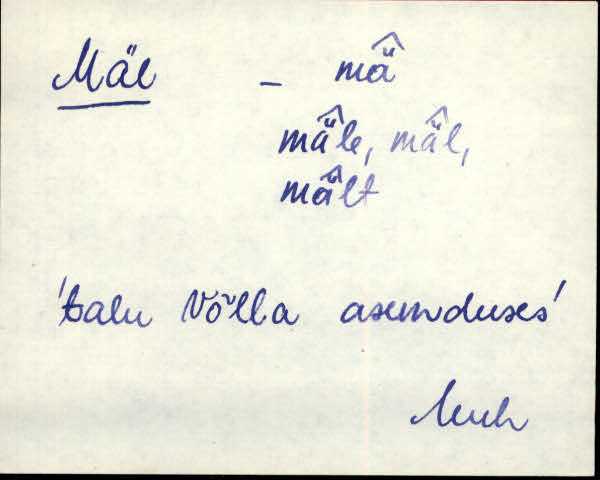 Mäl – mä̂
mä̂le, mä̂l,
mä̂lt
'talu Võlla asenduses'
Muh